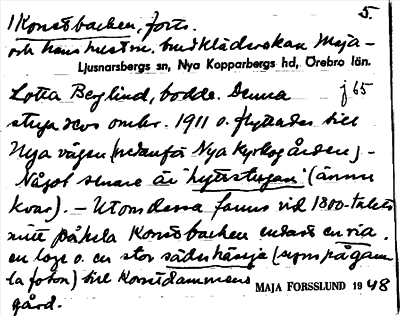 5.
1 Konstbacken, forts.
och hans hustru, brudkläderskan Maja-
Ljusnarsbergs sn, Nya Kopparbergs hd, Örebro län.
Lotta Berglind, bodde. Denna f 65
stuga revs omkr. 1911 o. flyttades till
Nya vägen (nedanför Nya Kyrkogården). -
Något senare är "hyttstugan" (ännu
kvar). - Utom dessa fanns vid 1800-talets
mitt på hela Konstbacken endast en ria,
en loge o. en stor sädeshässja (syns på gam-
la foton) till Konstdammens
gård.
MAJA FORSSLUND 1948